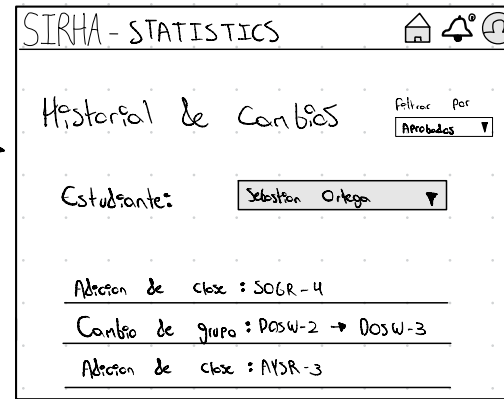 SIRHA - STATISTICS
Historial de Cambios
Filtrar Por
Aprobados
Estudiante:
Sebastian Ortega
Adicion de clase : SOGR-4
Cambio de grupo : DOSW-2 → DOSW-3
Adicion de clase : AYSR-3